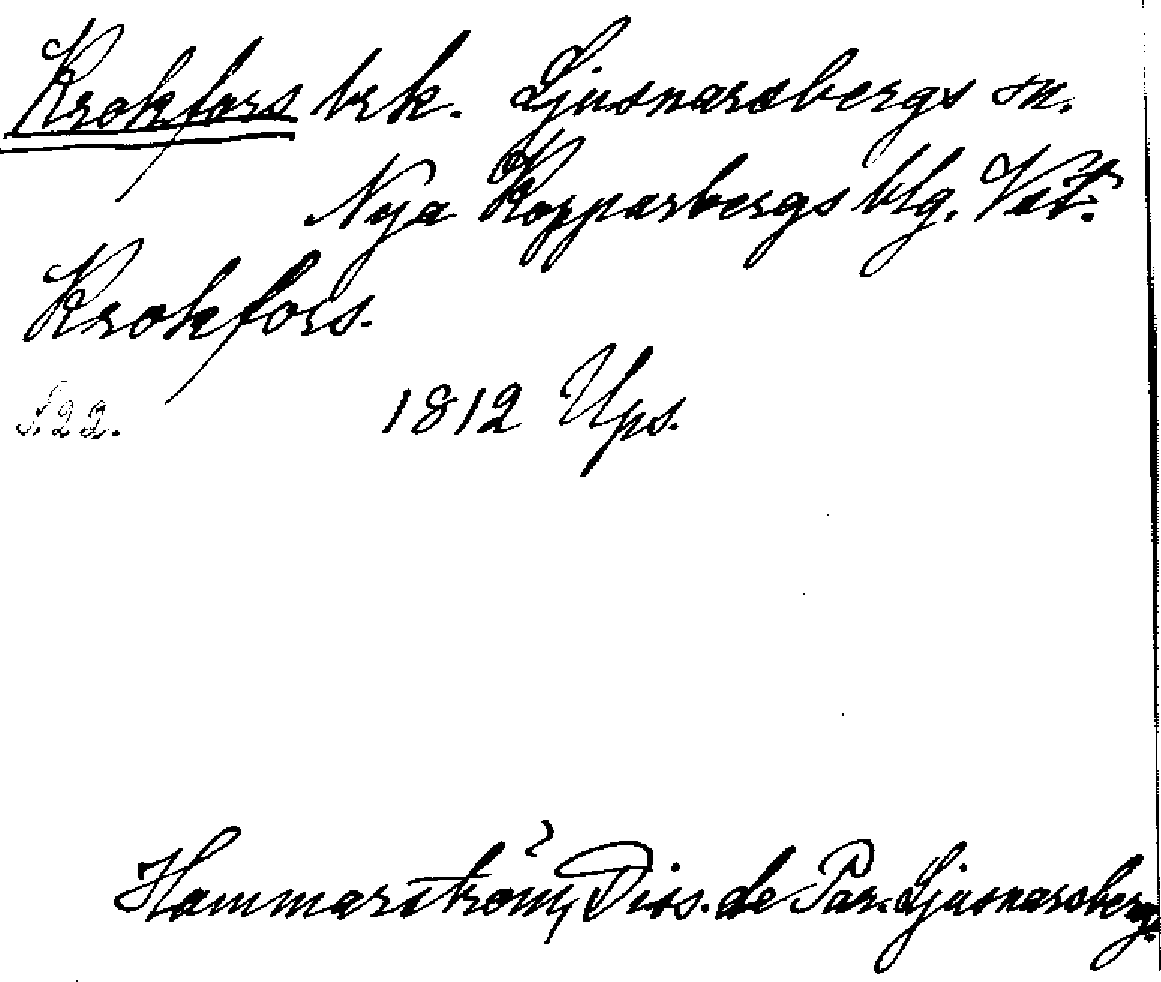 Krokfors brk. Ljusnarsbergs sn.
Nya Kopparbergs blg. Vstm.
Krokfors.
S. 22. 1812 Ups.
Hammarström, Diss. de Par. Ljusnarsberg.